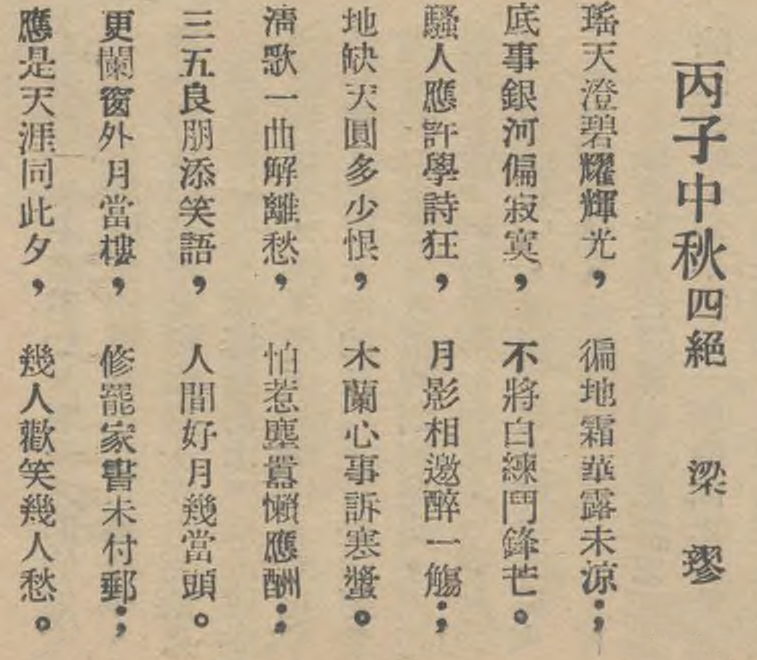 丙子中秋四絕 梁璆
瑤天澄碧耀輝光， 徧地霜華露未涼；
底事銀河偏寂寞， 不將白練鬥鋒芒。
騷人應許學詩狂， 月影相邀醉一觴；
地缺天圓多少恨， 木蘭心事訴寒螿。
清歌一曲解離愁， 怕惹塵囂懶應酬；
三五良朋添笑語， 人間好月幾當頭。
更闌窗外月當樓， 修罷家書未付郵；
應是天涯同此夕， 幾人歡笑幾人愁。